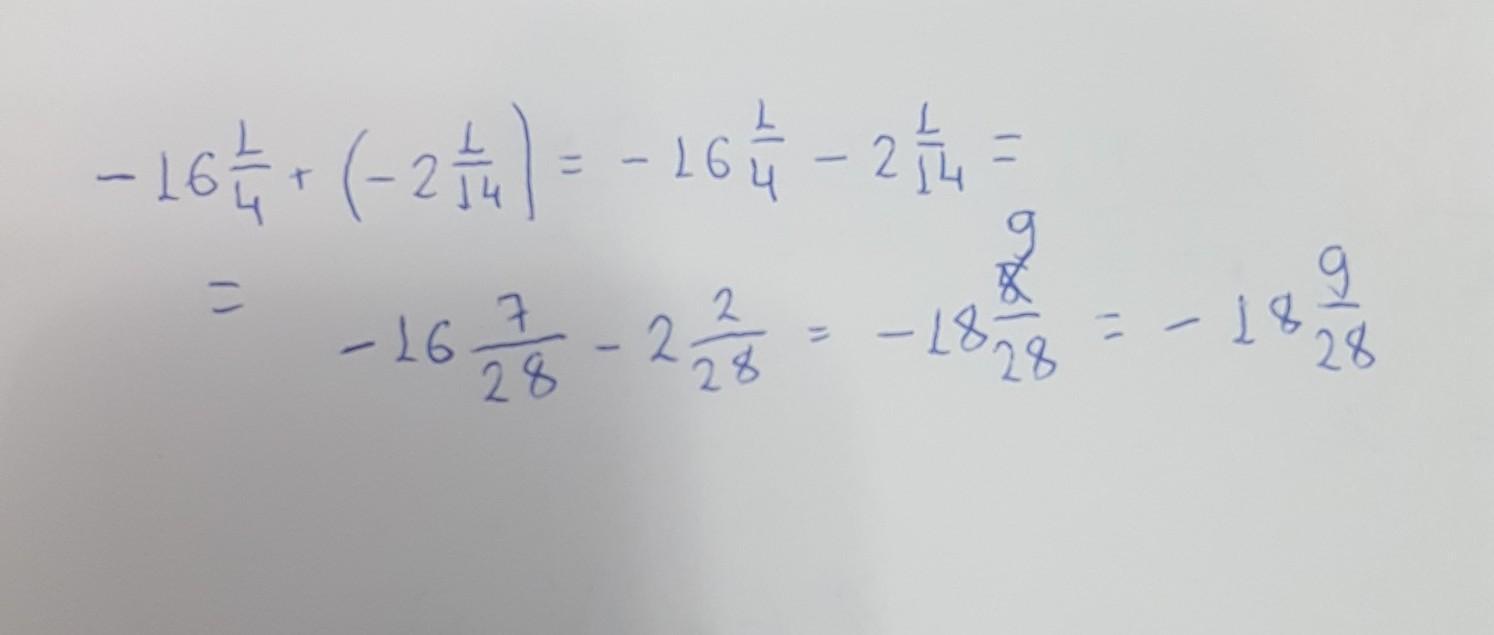 -16 1/4 + (-2 1/14) = -16 1/4 - 2 1/14 =
= -16 7/28 - 2 2/28 = -18 9/28 = -18 9/28